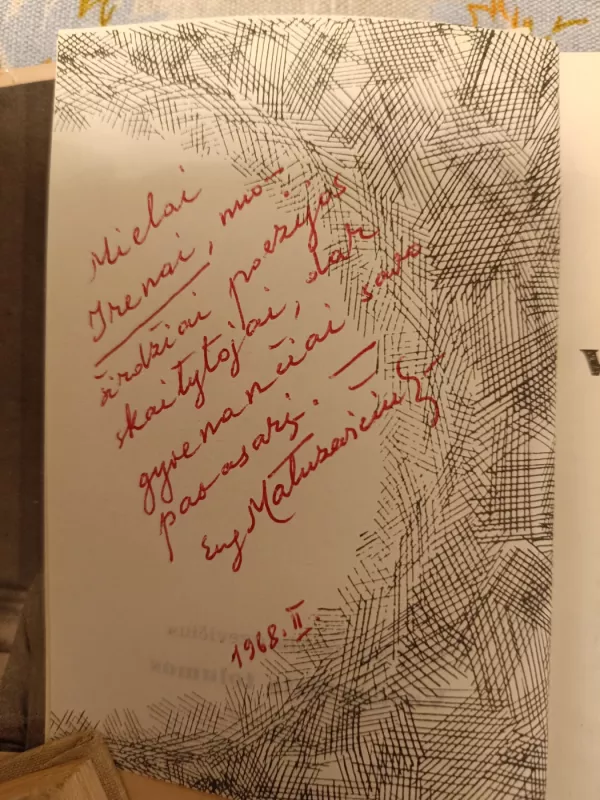 Mielai
Irenai, nuo-
širdžiai poezijos
skaitytojai, dar
gyvenančiai savo
pavasarį. —
Eug Matuzevičius
1968. II.